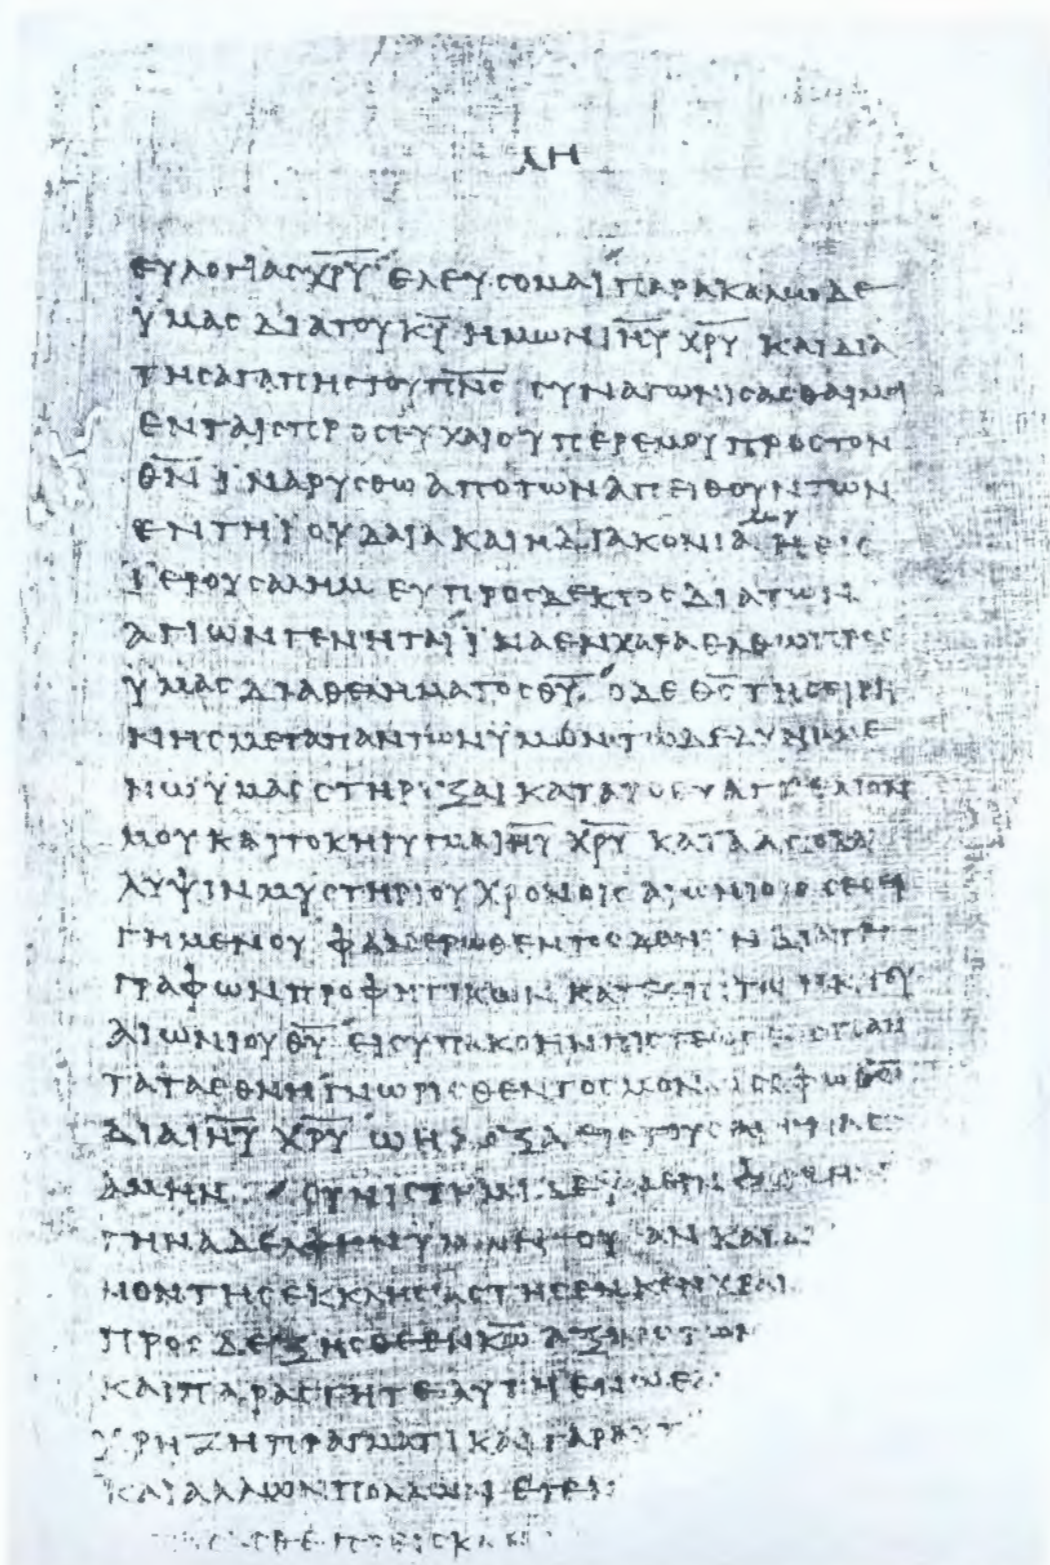 ΛΗ
ΕΥΛΟΓΙΑΣ ΧΡΥ ΕΛΕΥΣΟΜΑΙ ΠΑΡΑΚΑΛΩ ΔΕ
ΥΜΑΣ ΔΙΑ ΤΟΥ ΚΥ ΗΜΩΝ ΙΗΥ ΧΡΥ ΚΑΙ ΔΙΑ
ΤΗΣ ΑΓΑΠΗΣ ΤΟΥ ΠΝΣ ΣΥΝΑΓΩΝΙΣΑΣΘΑΙ ΜΟΙ
ΕΝ ΤΑΙΣ ΠΡΟΣΕΥΧΑΙΣ ΥΠΕΡ ΕΜΟΥ ΠΡΟΣ ΤΟΝ
ΘΝ ΪΝΑ ΡΥΣΘΩ ΑΠΟ ΤΩΝ ΑΠΕΙΘΟΥΝΤΩΝ
ΕΝ ΤΗ ΪΟΥΔΑΙΑ ΚΑΙ Η ΔΙΑΚΟΝΙΑ ΜΟΥ Η ΕΙΣ
ΪΕΡΟΥΣΑΛΗΜ ΕΥΠΡΟΣΔΕΚΤΟΣ ΔΙΑ ΤΩΝ
ΑΓΙΩΝ ΓΕΝΗΤΑΙ ΪΝΑ ΕΝ ΧΑΡΑ ΕΛΘΩ ΠΡΟΣ
ΥΜΑΣ ΔΙΑ ΘΕΛΗΜΑΤΟΣ ΘΥ Ο ΔΕ ΘΣ ΤΗΣ ΕΙΡΗ
ΝΗΣ ΜΕΤΑ ΠΑΝΤΩΝ ΥΜΩΝ ΤΩ ΔΕ ΔΥΝΑΜΕ
ΝΩ ΥΜΑΣ ΣΤΗΡΙΞΑΙ ΚΑΤΑ ΤΟ ΕΥΑΓΓΕΛΙΟΝ
ΜΟΥ ΚΑΙ ΤΟ ΚΗΡΥΓΜΑ ΙΗΥ ΧΡΥ ΚΑΤΑ ΑΠΟΚΑ
ΛΥΨΙΝ ΜΥΣΤΗΡΙΟΥ ΧΡΟΝΟΙΣ ΑΙΩΝΙΟΙΣ ΣΕΣΕΙ
ΓΗΜΕΝΟΥ ΦΑΝΕΡΩΘΕΝΤΟΣ ΔΕ ΝΥΝ ΔΙΑ ΤΕ
ΓΡΑΦΩΝ ΠΡΟΦΗΤΙΚΩΝ ΚΑΤ ΕΠΙΤΑΓΗΝ ΤΟΥ
ΑΙΩΝΙΟΥ ΘΥ ΕΙΣ ΥΠΑΚΟΗΝ ΠΙΣΤΕΩΣ ΕΙΣ ΠΑΝ
ΤΑ ΤΑ ΕΘΝΗ ΓΝΩΡΙΣΘΕΝΤΟΣ ΜΟΝΩ ΣΟΦΩ ΘΩ
ΔΙΑ ΙΗΥ ΧΡΥ Ω Η ΔΟΞΑ ΕΙΣ ΤΟΥΣ ΑΙΩΝΑΣ
ΑΜΗΝ ΣΥΝΙΣΤΗΜΙ ΔΕ ΦΟΙΒΗΝ
ΤΗΝ ΑΔΕΛΦΗΝ ΥΜΩΝ ΟΥΣΑΝ ΚΑΙ Δ
ΝΟΝ ΤΗΣ ΕΚΚΛΗΣΙΑΣ ΤΗΣ ΕΝ ΚΕΝΧΡΕΑΙ
ΠΡΟΣΔΕΞΗΣΘΕ ΕΝ ΚΩ ΑΞΙΩΣ ΤΩΝ
ΚΑΙ ΠΑΡΑΣΤΗΤΕ ΑΥΤΗ ΕΝ Ω Ε
ΧΡΗΖΗ ΠΡΑΓΜΑΤΙ ΚΑΙ ΓΑΡ ΑΥΤ
ΚΑΙ ΑΛΛΩΝ ΠΟΛΛΩΝ ΕΓΕ